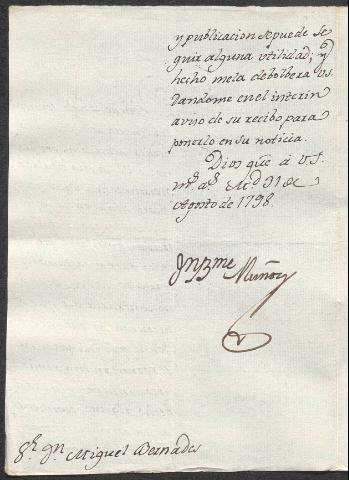 y publicacion se puede se
guir alguna vtilidad; y
hecho me la debolbera vs.
dandome en el interin
aviso de su recibo para
ponerlo en su noticia.
Dios gue à V.S.
ms. as. Md. 31 de
Agosto de 1798.
Muñoz
Sr. Dn. Miguel Bernades